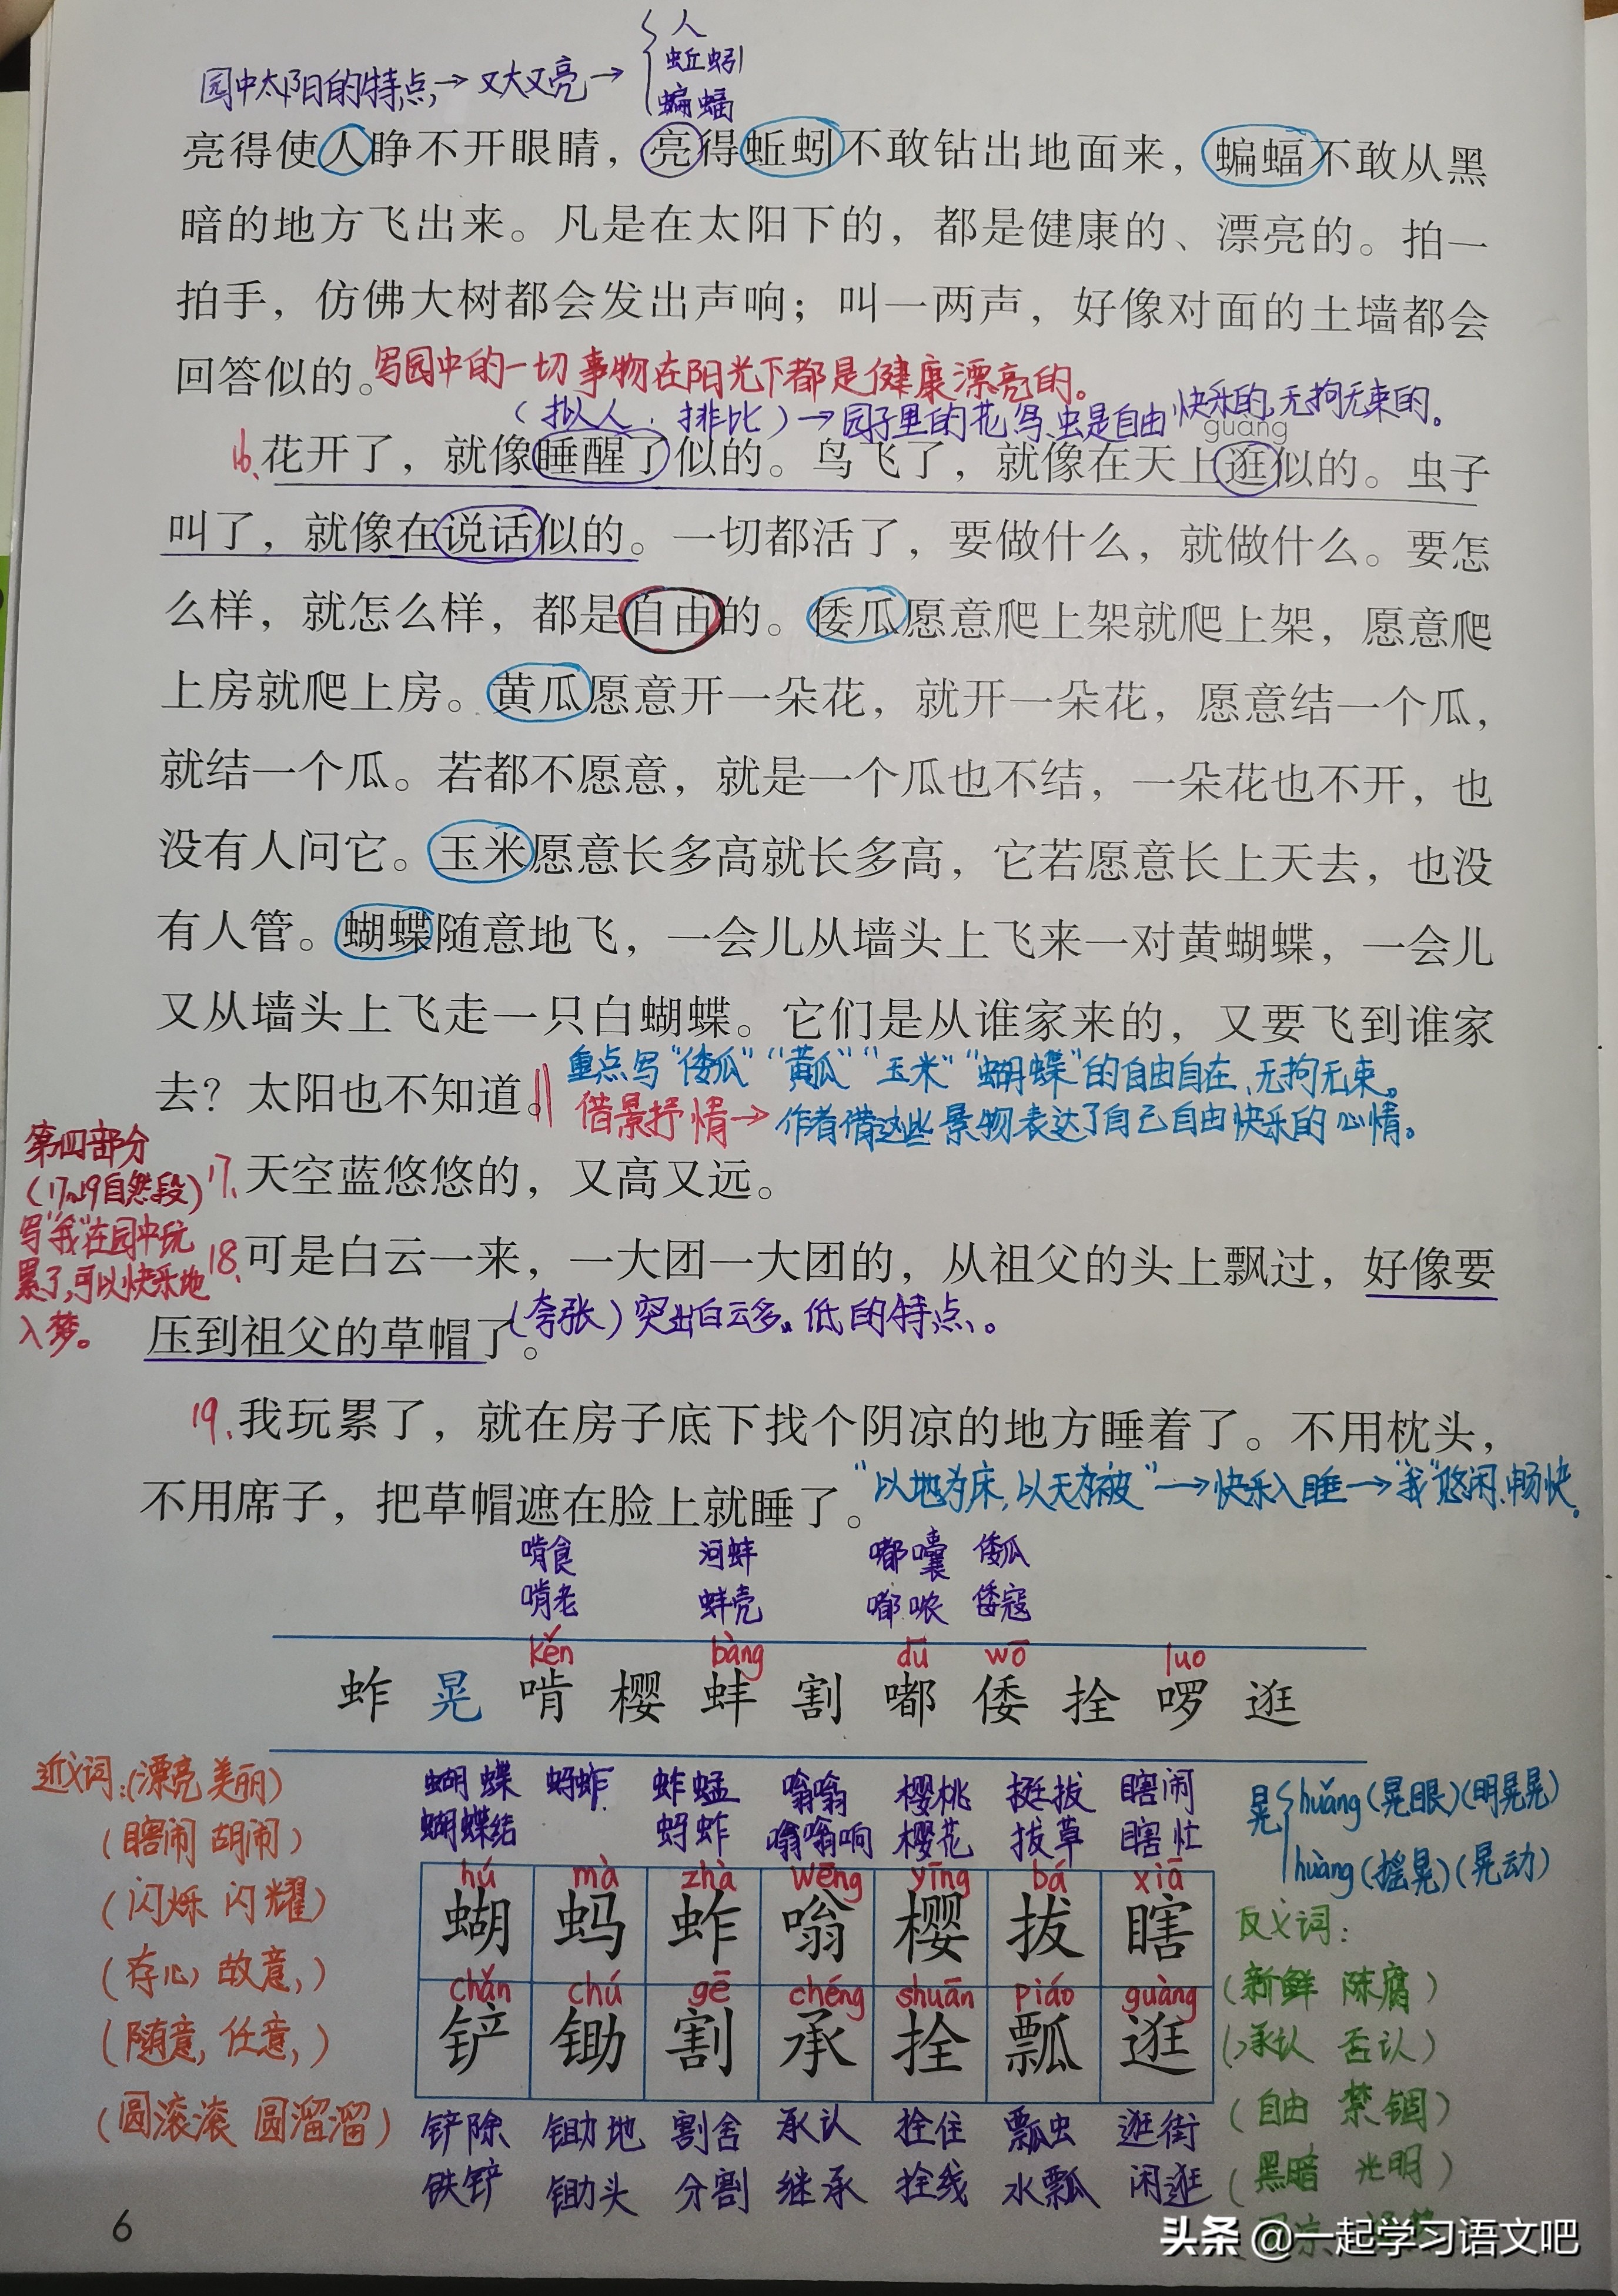 园中太阳的特点→又大又亮→
人
蚯蚓
蝙蝠
亮得使人睁不开眼睛，亮得蚯蚓不敢钻出地面来，蝙蝠不敢从黑
暗的地方飞出来。凡是在太阳下的，都是健康的、漂亮的。拍一
拍手，仿佛大树都会发出声响；叫一两声，好像对面的土墙都会
回答似的。写园中的一切事物在阳光下都是健康漂亮的。
（拟人、排比）→园子里的花、鸟、虫是自由快乐的，无拘无束的。
guàng
16、花开了，就像睡醒了似的。鸟飞了，就像在天上逛似的。虫子
叫了，就像在说话似的。一切都活了，要做什么，就做什么。要怎
么样，就怎么样，都是自由的。倭瓜愿意爬上架就爬上架，愿意爬
上房就爬上房。黄瓜愿意开一朵花，就开一朵花，愿意结一个瓜，
就结一个瓜。若都不愿意，就是一个瓜也不结，一朵花也不开，也
没有人问它。玉米愿意长多高就长多高，它若愿意长上天去，也没
有人管。蝴蝶随意地飞，一会儿从墙头上飞来一对黄蝴蝶，一会儿
又从墙头上飞走一只白蝴蝶。它们是从谁家来的，又要飞到谁家
去？太阳也不知道。
重点写“倭瓜”“黄瓜”“玉米”“蝴蝶”的自由自在、无拘无束。
借景抒情→作者借这些景物表达了自己自由快乐的心情。
第四部分
（17~19自然段）
写“我”在园中玩
累了，可以快乐地
入梦。
17、天空蓝悠悠的，又高又远。
18、可是白云一来，一大团一大团的，从祖父的头上飘过，好像要
压到祖父的草帽了。（夸张）突出白云多、低的特点。
19、我玩累了，就在房子底下找个阴凉的地方睡着了。不用枕头，
不用席子，把草帽遮在脸上就睡了。
“以地为床，以天为被”→快乐入睡→“我”悠闲、畅快。
啃食 河蚌 嘟囔 倭瓜
啃老 蚌壳 嘟哝 倭寇
kěn bàng dū wō luo
蚱 晃 啃 樱 蚌 割 嘟 倭 拴 啰 逛
近义词：（漂亮 美丽）
（瞎闹 胡闹）
（闪烁 闪耀）
（存心 故意）
（随意 任意）
（圆滚滚 圆溜溜）
蝴蝶 蚂蚱 蚱蜢 嗡嗡 樱桃 挺拔 瞎闹
蝴蝶结 蚂蚱 嗡嗡响 樱花 拔草 瞎忙
hú mà zhà wēng yīng bá xiā
蝴 蚂 蚱 嗡 樱 拔 瞎
chǎn chú gē chéng shuān piáo guàng
铲 锄 割 承 拴 瓢 逛
铲除 锄地 割舍 承认 拴住 瓢虫 逛街
铁铲 锄头 分割 继承 拴线 水瓢 闲逛
晃
huǎng（晃眼）（明晃晃）
huàng（摇晃）（晃动）
反义词：
（新鲜 陈腐）
（承认 否认）
（自由 禁锢）
（黑暗 光明）
6
头条 @一起学习语文吧